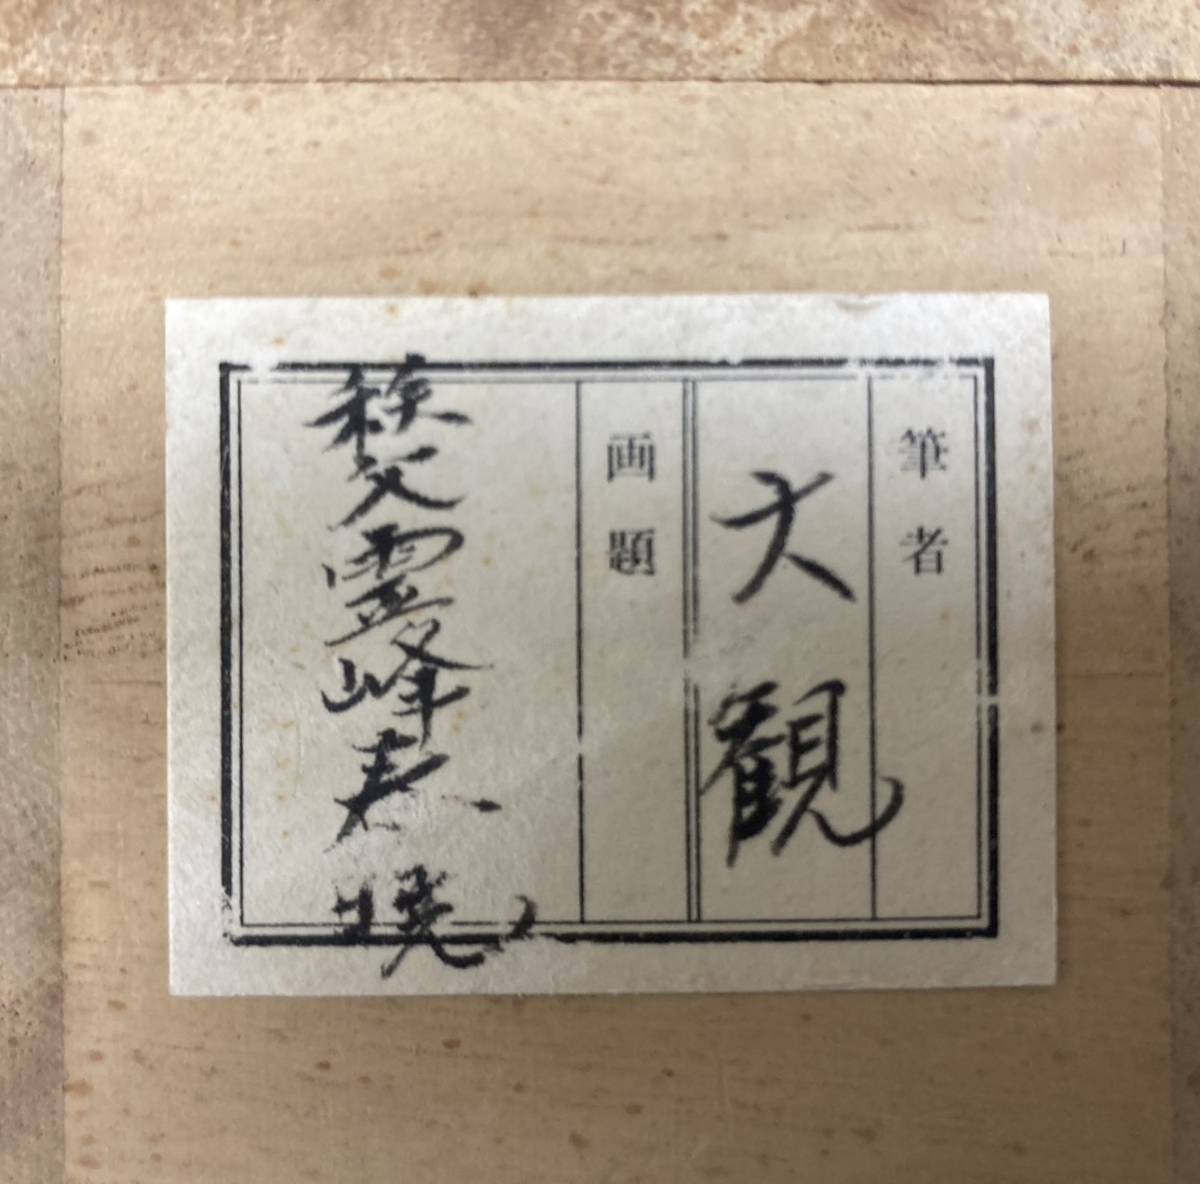 筆者
大観
画題
秩父霊峰春暁